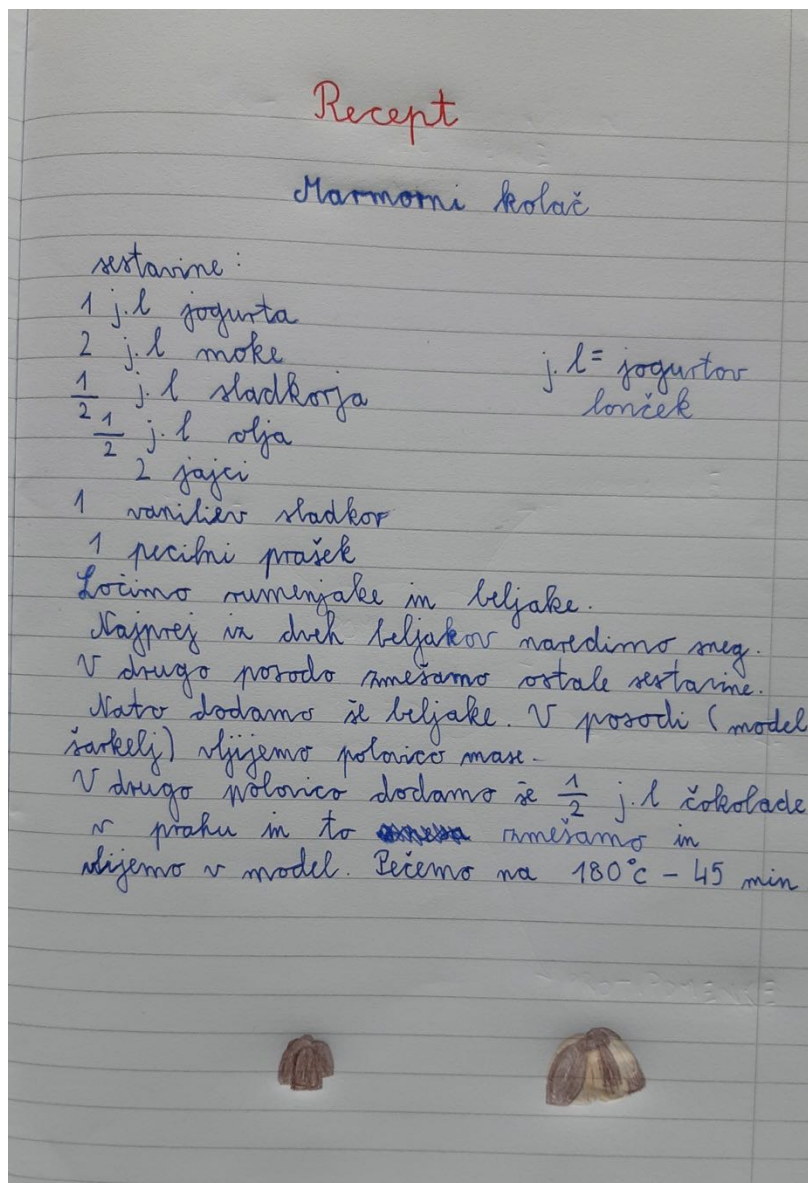 Recept
Marmorni kolač
sestavine:
1 j.l jogurta
2 j.l moke
1/2 j.l sladkorja
j.l = jogurtov
lonček
1/2 j.l olja
2 jajci
1 vaniliev sladkor
1 pecilni prašek
Ločimo rumenjake in beljake.
Najprej iz dveh beljakov naredimo sneg.
V drugo posodo zmešamo ostale sestavine.
Nato dodamo še beljake. V posodi (model
šarkelj) vlijemo polovico mase.
V drugo polovico dodamo še 1/2 j.l čokolade
v prahu in to zmešamo in
vlijemo v model. Pečemo na 180°c - 45 min